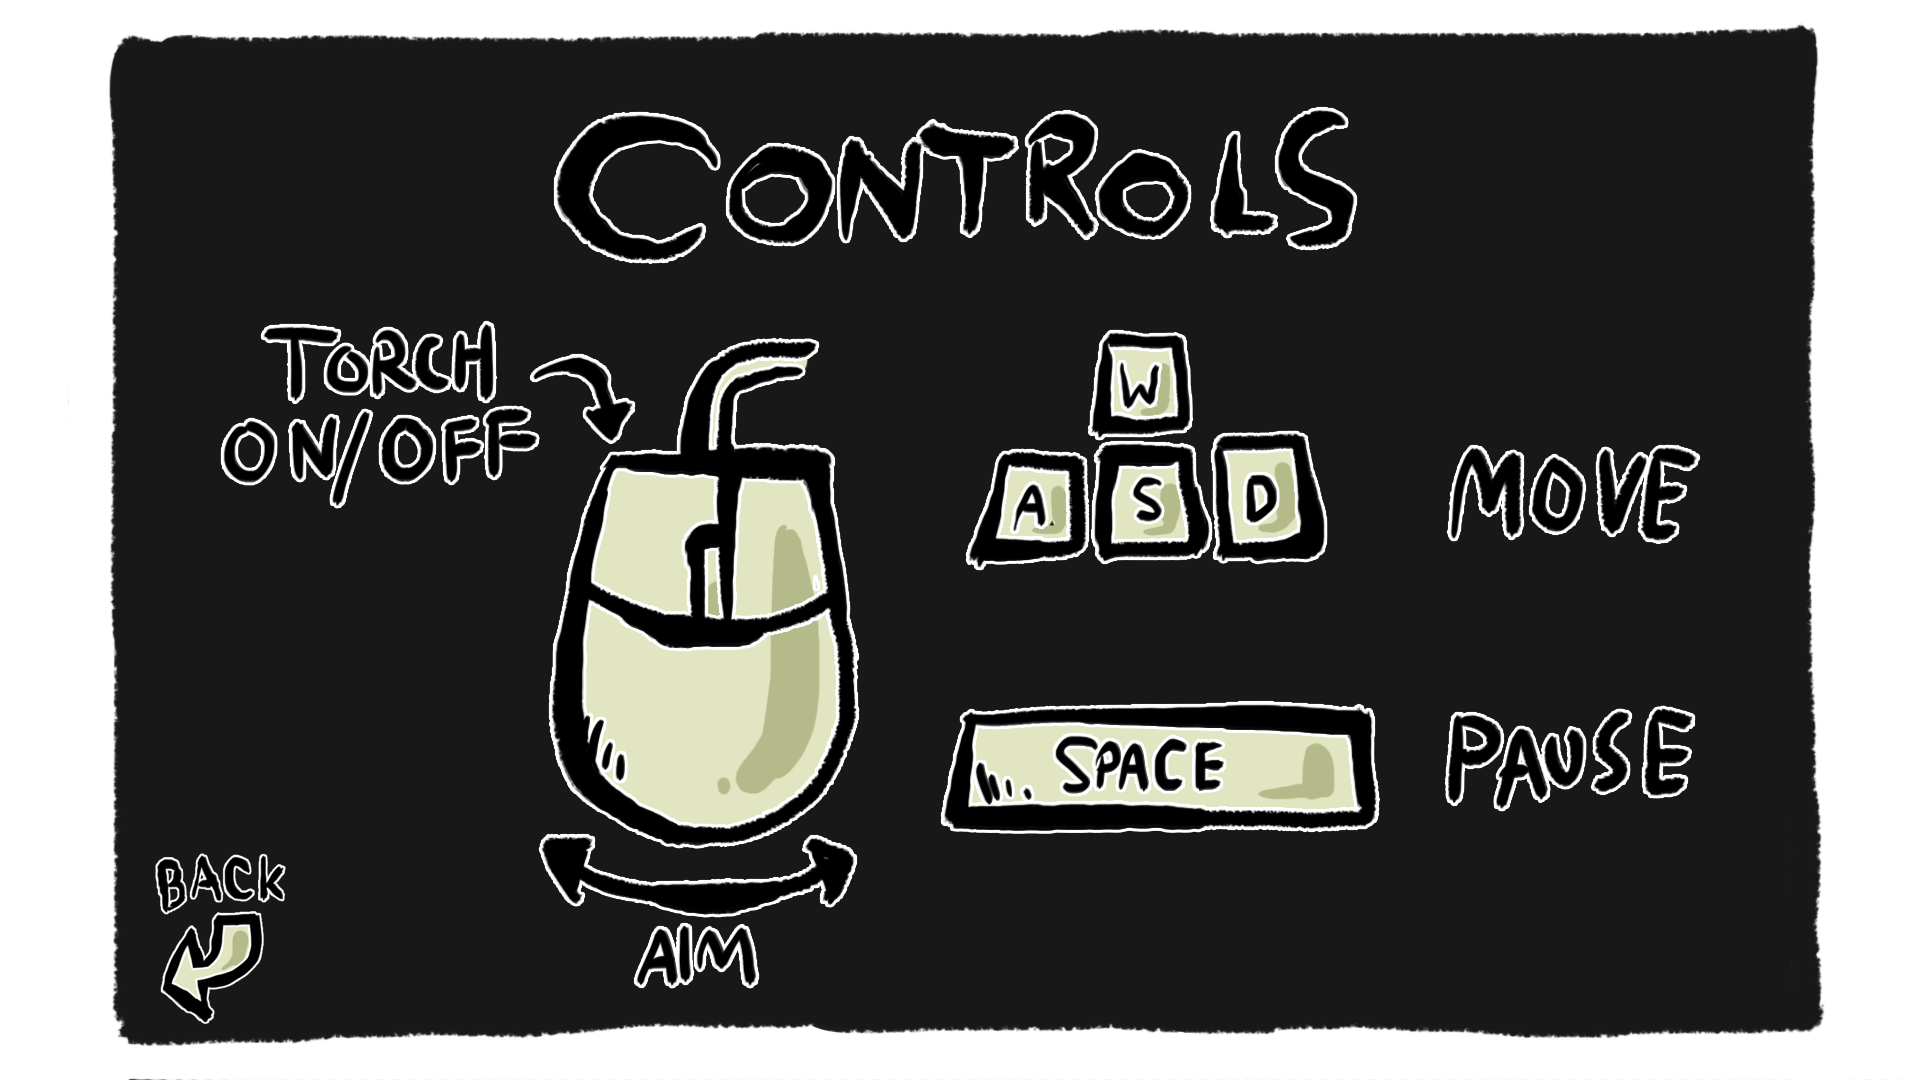 CONTROLS
TORCH
ON/OFF
W
A S D
MOVE
SPACE
PAUSE
BACK
AIM